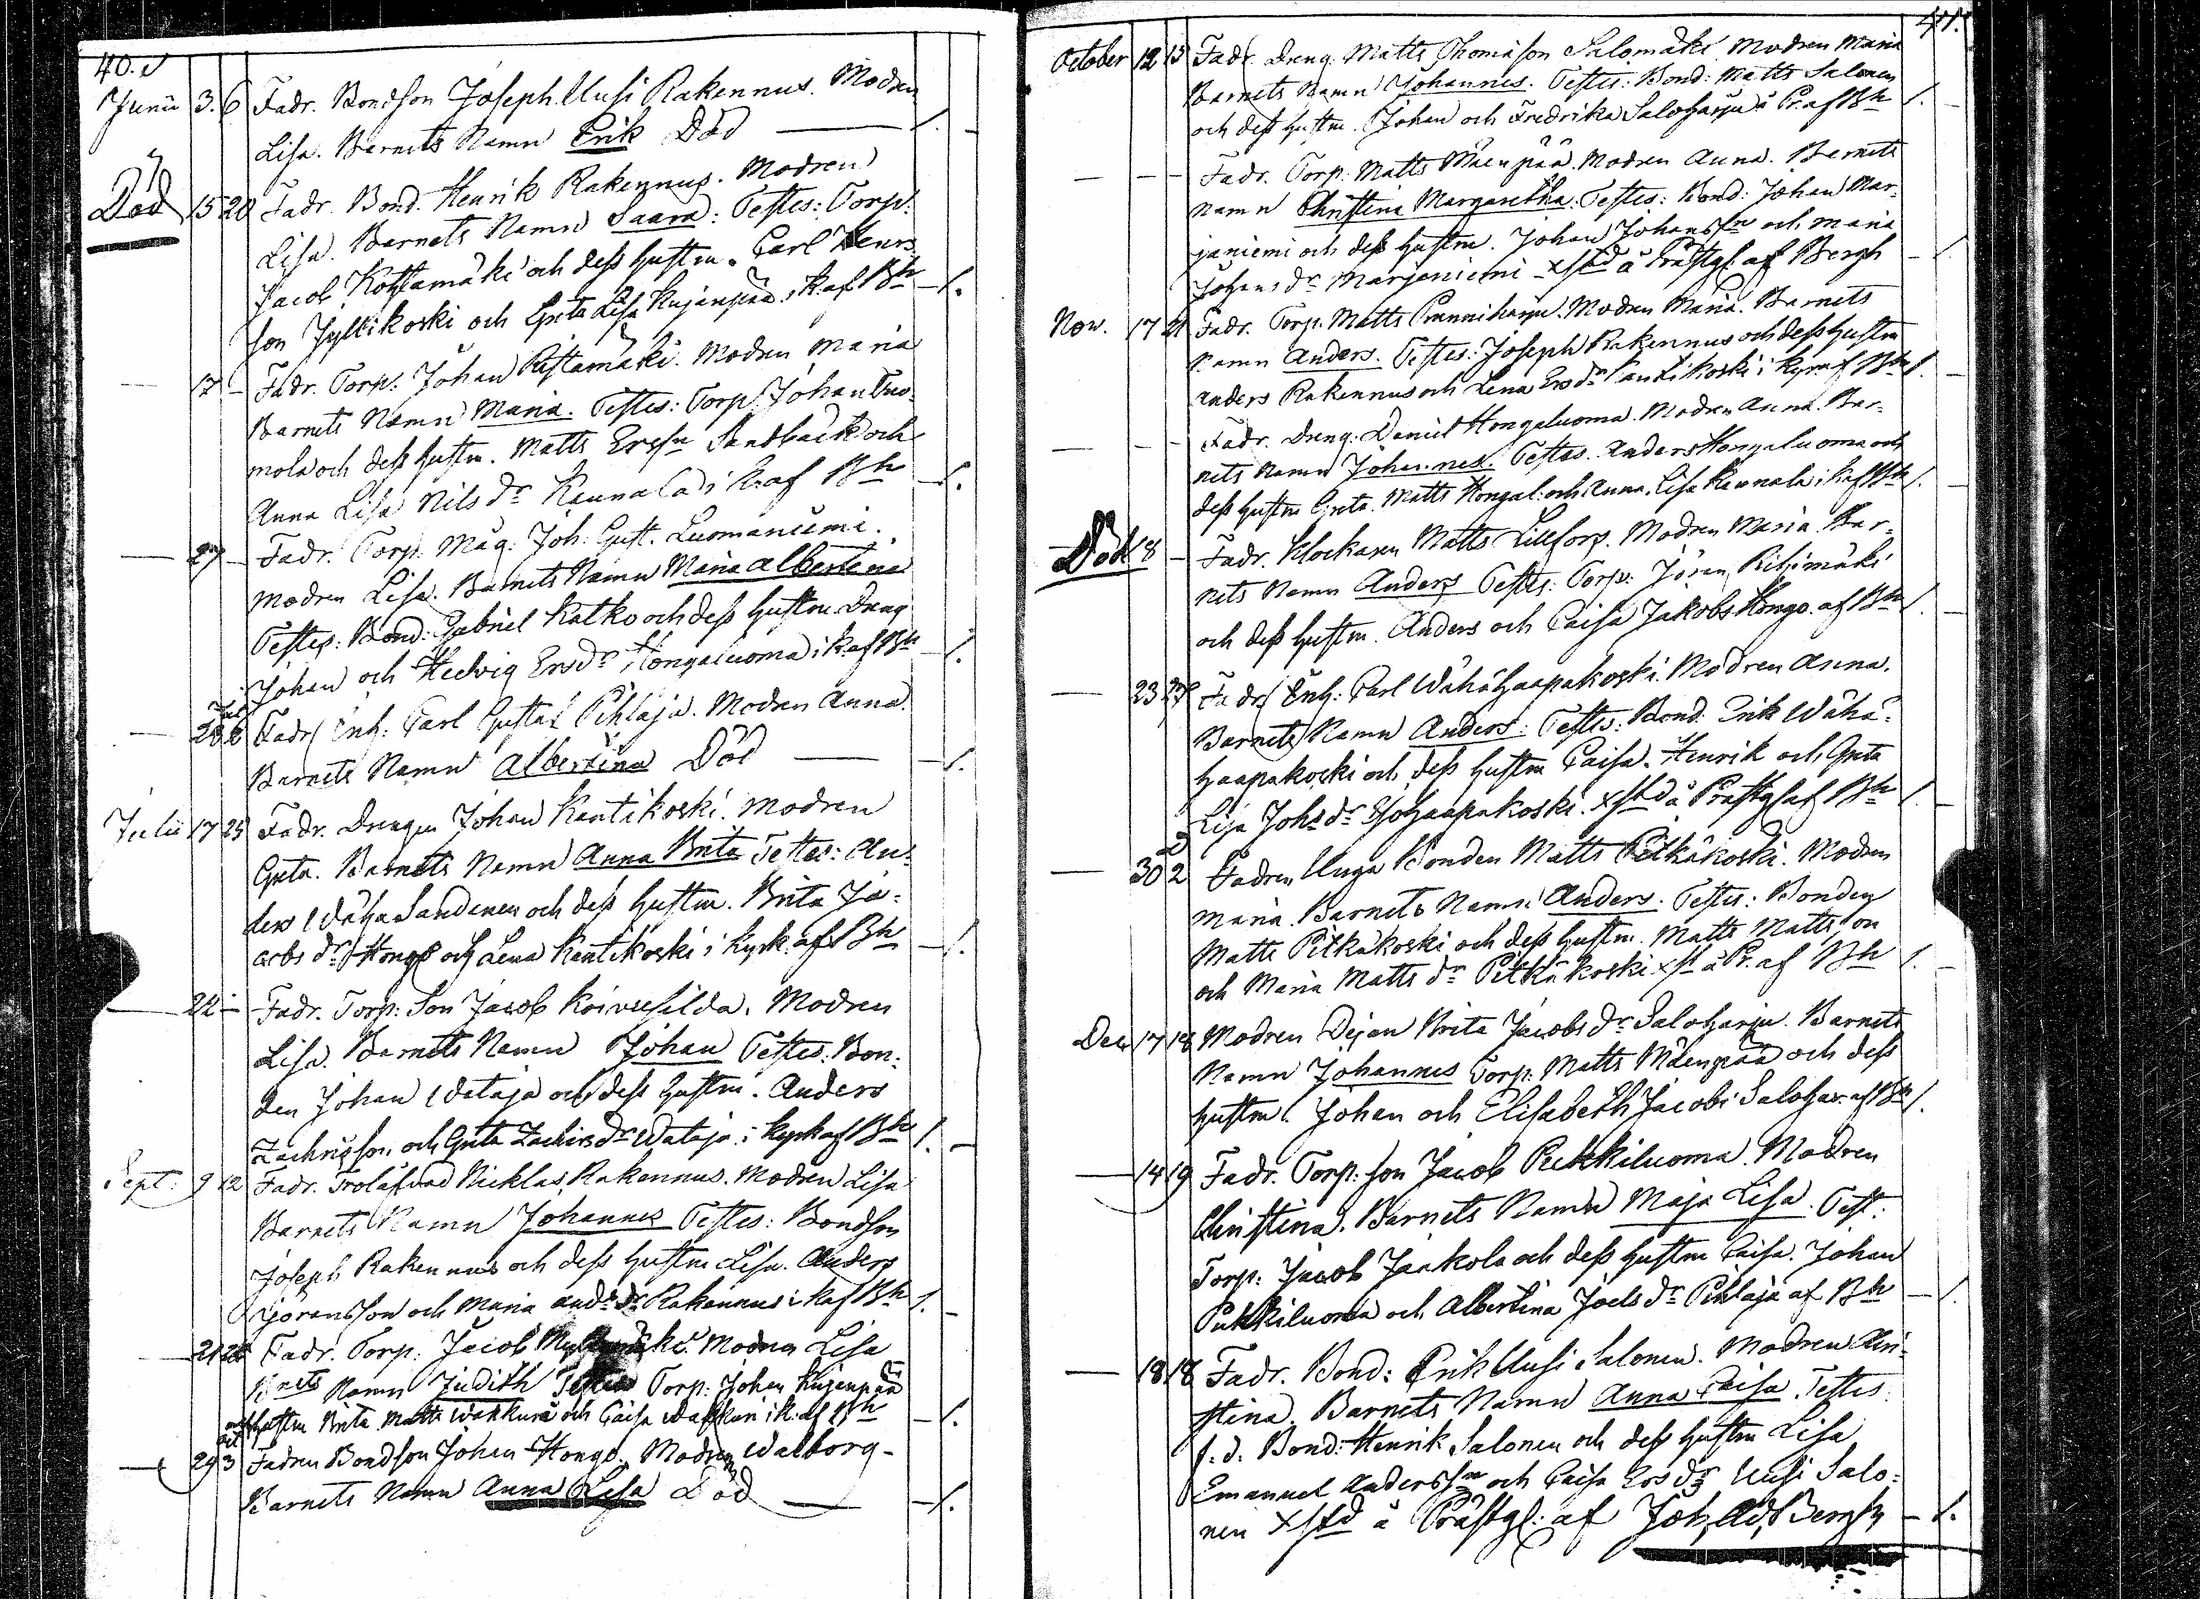 40.
Junii 3. 6 Fadr. Bondson Joseph Uusi Rakennus. Modren
Lisa. Barnets Namn Erik Död
Död 15 20 Fadr. Bond. Henrik Rakennus. Modren
Lisa. Barnets Namn Saara: Testes: Torp:
Jacob Kohtamäki och dess hustru. Carl Henrs
son Jyllikoski och Greta Lisa Kujanpää i K. af Bh
17 - Fadr. Torp: Johan Ristamäki. Modren Maria
Barnets Namn Maria. Testes: Torp. Johan Tuo-
mola och dess hustru. Matts Ersson Sandbacka och
Anna Lisa Nils dr Kaunala i K. af Bh
27 - Fadr. Torp. Måg: Joh: Gust. Luomaniemi.
Modren Lisa. Barnets Namn Maria Albertina
Testes: Bond: Gabriel Katko och dess hustru. Dräng
Johan och Hedvig Ersdr Hongaluoma i K. af Bh
Fadr. Inh: Carl Gustaf Pihlaja. Modren Anna.
Barnets Namn Albertina Död
Julii 17 25 Fadr. Drengen Johan Kantikoski. Modren
Greta. Barnets Namn Anna Brita Testes: An-
ders Wähä Sandanen och dess hustru. Brita Ja-
cobs dr Hongo och Lena Kantikoski i kyrk. af Bh
24 - Fadr. Torp: Son Jacob Koivusilda. Modren
Lisa. Barnets Namn Johan Testes. Bon-
den Johan Wataja och dess hustru. Anders
Zachrisson och Greta Zachrisdr Wataja i kyrk af Bh
Sept: 9 12 Fadr. Niklas Rakennus. Modren Lisa
Barnets Namn Johannes Testes: Bondson
Joseph Rakennus och dess hustru Lisa. Anders
Göransson och Maria And: dr Rakennus i K af Bh
21 Fadr. Torp: Jacob Modren Lisa
Bnets Namn Judith Testes Torp: Johan Kujanpää
hustru Brita. Matts Wakkuri och Caisa Wakkuri i K. af Bh
29 3 Fadren Bondson Johan Hongo. Modren Walborg
Barnets Namn Anna Lisa Död
41.
October 12 13 Fadr. Dreng: Matts Thomasson Salomäki Modren Maria
Barnets Namn Johannes. Testes: Bond: Matts Salonen
och dess hustru. Johan och Fredrika Saloharju å Pr af Bh
- - - Fadr. Torp: Matts Mäenpää. Modren Anna. Barnets
Namn Christina Margaretha. Testes: Bond: Johan Mar-
janiemi och dess hustru. Johan Johansson och Maria
Johans dr Marjaniemi xstnd å Prästg. af Bergh
Nov. 17 21 Fadr. Torp. Matts Prennikarju. Modren Maria. Barnets
Namn Anders. Testes: Joseph Rakennus och dess hustru
Anders Rakennus och Lena Ersdr Kantikoski i kyrk. af Bh
- - - Fadr. Dreng: Daniel Hongaluoma. Modren Anna. Bar-
nets Namn Johannes. Testes. Anders Hongaluoma och
dess hustru Greta. Matts Hongal: och Anna Lisa Kaunala i K af Bh
Död 18 - Fadr. Klockaren Matts Lillfors. Modren Maria. Bar-
nets Namn Anders Testes: Torp: Jöran Riihimäki
och dess hustru. Anders och Caisa Jakobs Hongo. af Bh
23 Fadr. Inh: Carl Wähähaapakoski. Modren Anna.
Barnets Namn Anders: Testes: Bond: Erik Wähä-
haapakoski och dess hustru Caisa. Henrik och Greta
Lisa Johs dr Isohaapakoski. xstnd å Prästg af Bh
30 2 Fadren Unga Bonden Matts Pitkäkoski. Modren
Maria. Barnets Namn Anders. Testes: Bonden
Matts Pitkäkoski och dess hustru. Matts Mattsson
och Maria Matts dr Pitkäkoski xst å Pr. af Bh
Dec 17 18 Modren Pigan Brita Jacobs dr Saloharju. Barnets
Namn Johannes Torp: Matts Mäenpää och dess
hustru. Johan och Elisabeth Jacobs Salohar. af Bh
14 19 Fadr. Torp: son Jacob Pukkiluoma. Modren
Christina. Barnets Namn Maja Lisa. Test:
Torp: Jacob Jaakola och dess hustru Caisa. Johan
Pukkiluoma och Albertina Joels dr Pihlaja af Bh
18 18 Fadr. Bond: Erik Uusi Salonen. Modren Chri-
stina. Barnets Namn Anna Caisa. Testes
f. d. Bond: Henrik Salonen och dess hustru Lisa
Emanuel Andersson och Caisa Ers dr Uusi Salo-
nen xstnd å Prästg: af Joh. Ad. Bergh